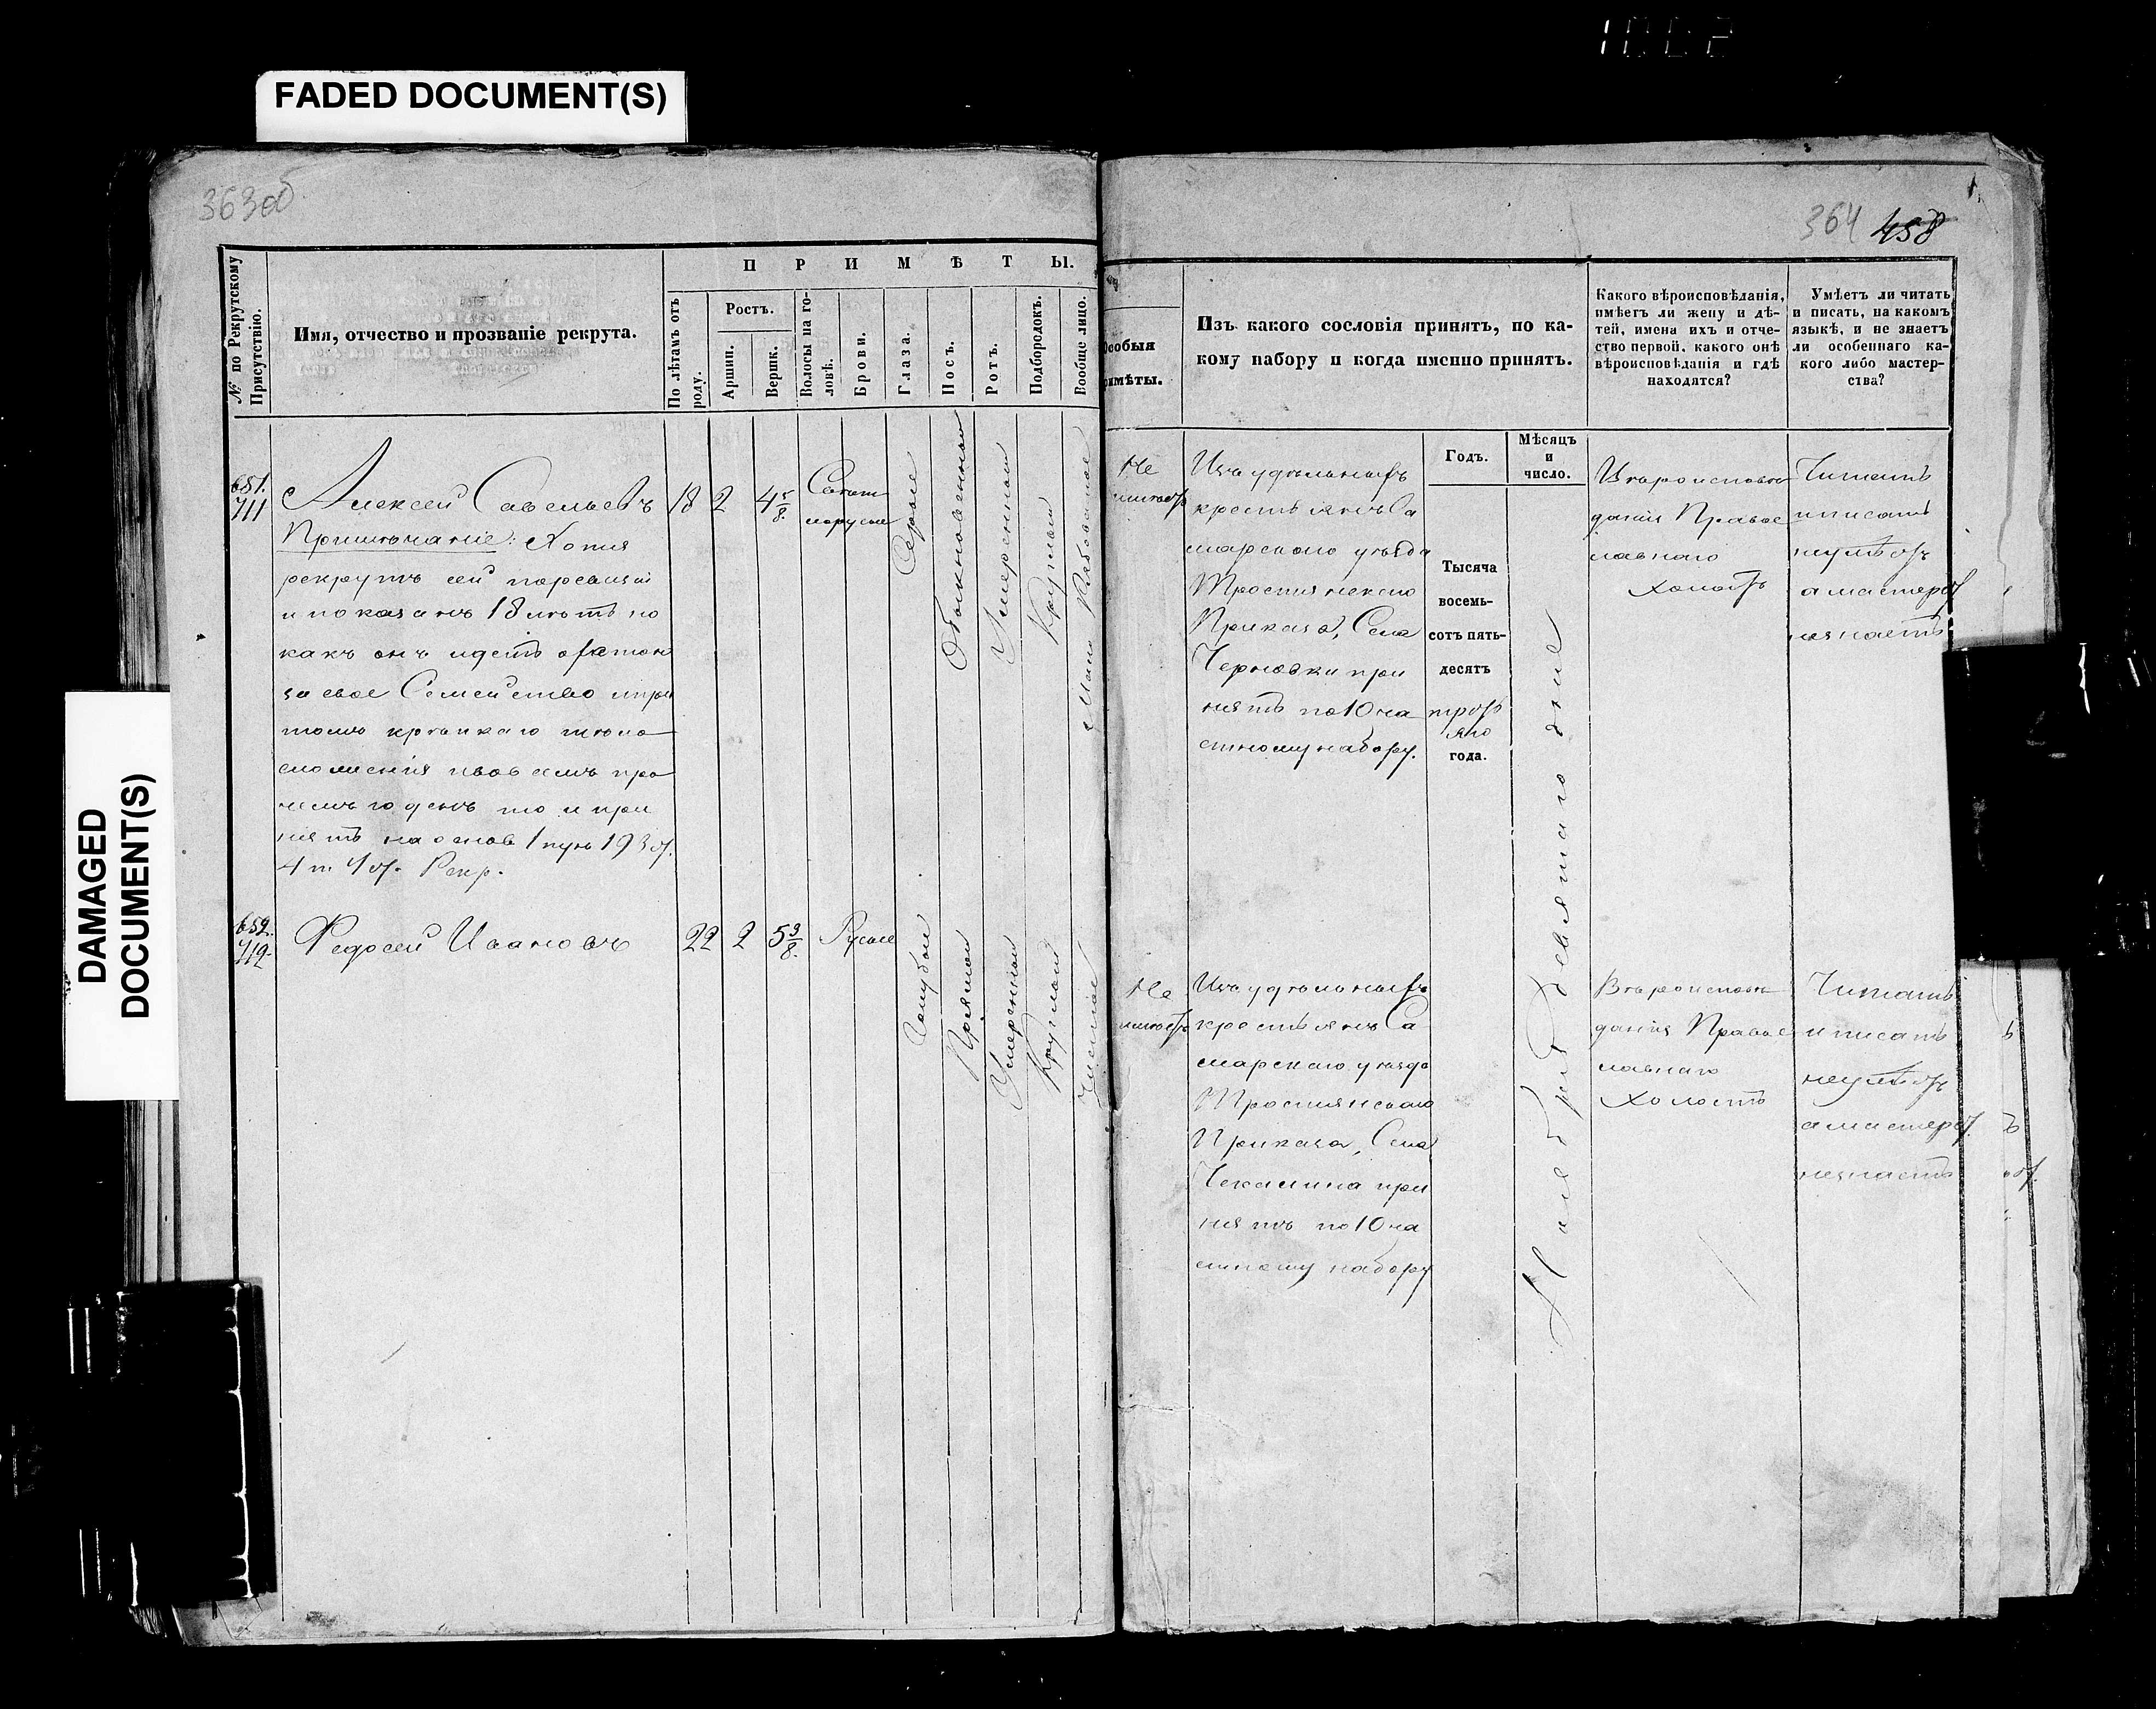 1002
FADED DOCUMENT(S)
DAMAGED
DOCUMENT(S)
363 об
364 458
№ по Рекрутскому
Присутствію.
Имя, отчество и прозваніе рекрута.
ПРИМѢТЫ.
По лѣтамъ отъ
роду.
Ростъ.
Аршин.
Вершк.
Волосы на го-
ловѣ.
Брови.
Глаза.
Носъ.
Ротъ.
Подбородокъ.
Вообще лицо.
Особыя
имѣты.
Изъ какого сословія принятъ, по ка-
кому набору и когда именно принятъ.
Годъ.
Мѣсяцъ
и
число.
Какого вѣроисповѣданія,
имѣетъ ли жену и дѣ-
тей, имена ихъ и отче-
ство первой, какого онѣ
вѣроисповѣданія и гдѣ
находятся?
Умѣетъ ли читать
и писать, на какомъ
языкѣ, и не знаетъ
ли особеннаго ка-
кого либо мастер-
ства?
651.
711
Алексей Савельевъ
18
2
4 5/8.
Светл
лорусые
Серые
Обыкновенный
Умеренный
Круглый
Мало Рябоватое
Примѣчаніе: Хотя
рекрутъ сей
и показанъ 18 лѣтъ но
какъ онъ идетъ охотою
за свое Семейство и при
томъ крѣпкаго тѣло
сложенія и во всемъ про
чемъ годенъ то и при
нятъ на основ 1 пун 193 ст.
4 т. Рекр.
Не
имѣетъ
Изъ удѣльныхъ
крестьянъ Са
марскаго уѣзда
Тростянскаго
Приказа, Села
Черновки при
нятъ по 10 ча
стному набору.
Тысяча
восемь-
сотъ пять-
десятъ
треть
яго
года.
Ноября девятаго дне
Вѣроисповѣ
данія Правос
лавнаго
Холостъ
Читать
и писать
неумѣетъ
а мастерст
незнаетъ
652.
712.
Федосей Ивановъ
22
2
5 3/8.
Русые
Голубые
Прямой
Умеренный
Круглый
Чистое
Не
имѣетъ
Изъ удѣльныхъ
крестьянъ Са
марскаго уѣзда
Тростянскаго
Приказа, Села
Чекалина при
нятъ по 10 ча
стному набору
Вѣроисповѣ
данія Правос
лавнаго
Холостъ
Читать
и писать
неумѣетъ
а мастерст.
незнаетъ